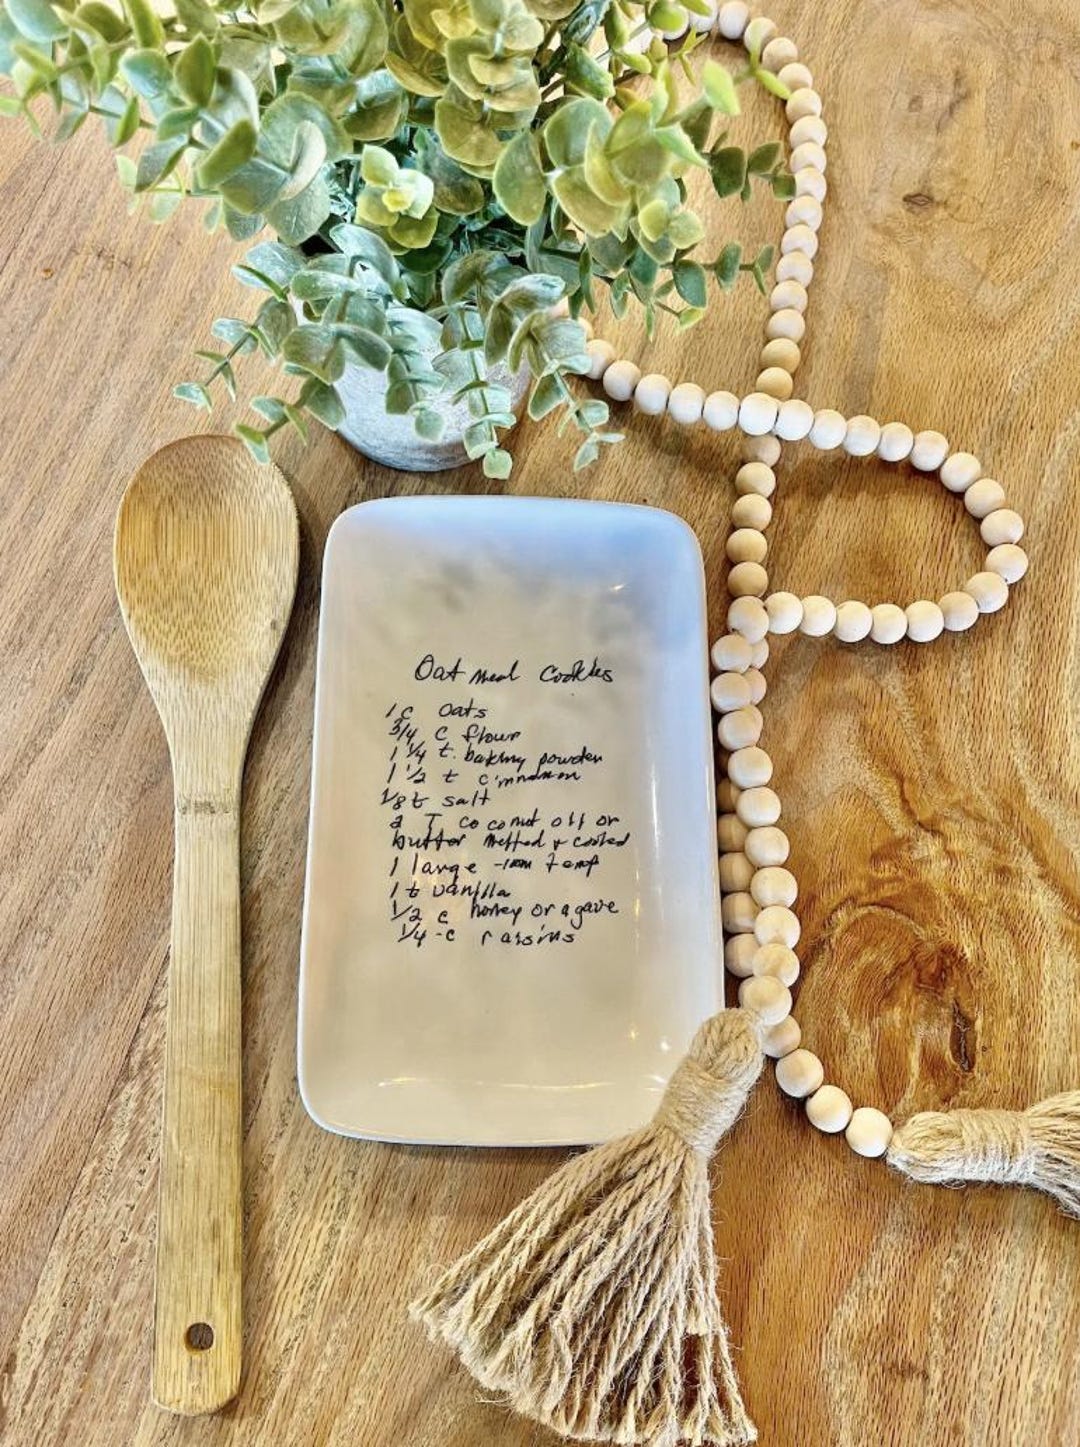 Oat meal Cookies
1 c oats
3/4 c flour
1 1/4 t. baking powder
1 1/2 t cinnamon
1/8 t salt
2 T coconut oil or
butter melted & cooled
1 large - room temp
1 t vanilla
1/2 c honey or agave
1/4 - c raisins